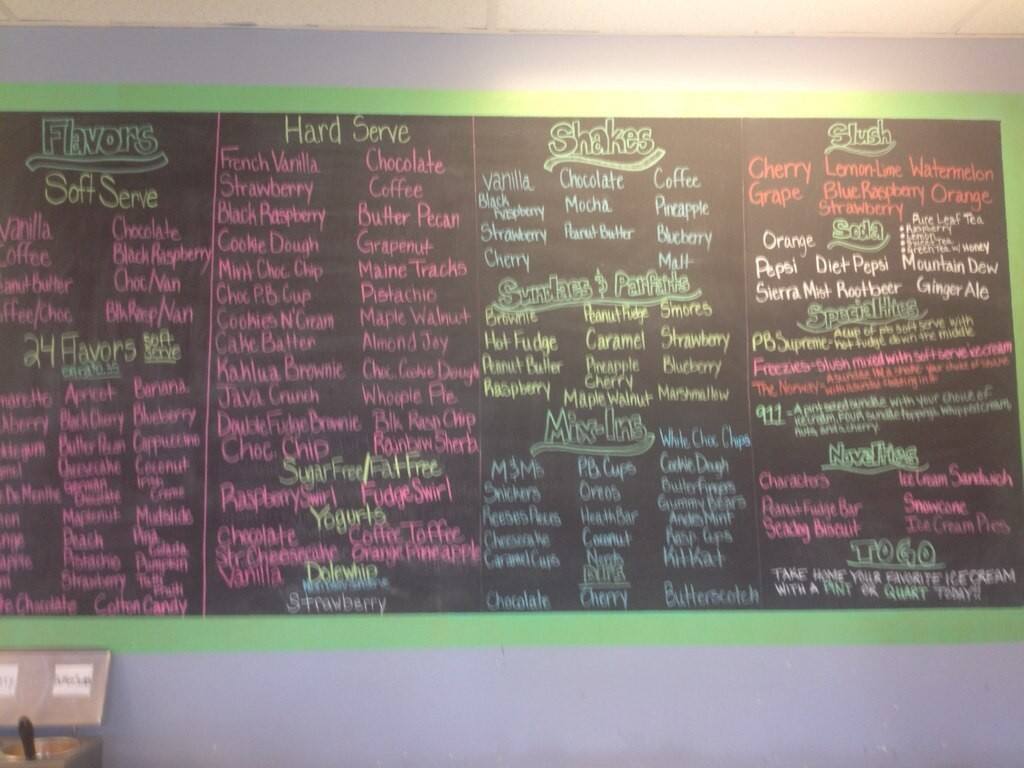 Flavors
Soft Serve
Vanilla Chocolate
Coffee Black Raspberry
Peanut Butter Choc/Van
Coffee/Choc Blk Rasp/Van
24 Flavors soft serve
Amaretto Apricot Banana
BlackBerry Blueberry
Butter Pecan Cappuccino
Cheesecake Coconut
De Menthe German Chocolate Irish Creme
Maplenut Mudslide
Peach Pina Colada
Pistachio Pumpkin
Strawberry Tutti Fruiti
Chocolate Cotton Candy
Hard Serve
French Vanilla Chocolate
Strawberry Coffee
Black Raspberry Butter Pecan
Cookie Dough Grapenut
Mint Choc Chip Maine Tracks
Choc P.B. Cup Pistachio
Cookies N' Cream Maple Walnut
Cake Batter Almond Joy
Kahlua Brownie Choc. Cookie Dough
Java Crunch Whoopie Pie
Double Fudge Brownie Blk Rasp Chip
Choc. Chip Rainbow Sherb
Sugar Free/Fat Free
Raspberry Swirl Fudge Swirl
Yogurts
Chocolate Coffee Toffee
Str. Cheesecake Orange Pineapple
Vanilla Dolewhip
Strawberry
Shakes
Vanilla Chocolate Coffee
Black Raspberry Mocha Pineapple
Strawberry Peanut Butter Blueberry
Cherry Malt
Sundaes & Parfaits
Brownie Peanut Fudge Smores
Hot Fudge Caramel Strawberry
Peanut Butter Pineapple Blueberry
Raspberry Cherry
Maple Walnut Marshmallow
Mix-Ins White Choc Chips
M&M's P.B. Cups Cookie Dough
Snickers Oreos Butterfingers
Gummy Bears
Reeses Pieces Heath Bar Andes Mint
Cheesecake Coconut Rasp Cups
Caramel Cups Nuts Kit Kat
Dips
Chocolate Cherry Butterscotch
Slush
Cherry Lemon-Lime Watermelon
Grape Blue Raspberry Orange
Strawberry
Soda
Pure Leaf Tea
• Raspberry
• Lemon
• Green Tea w/ Honey
Orange
Pepsi Diet Pepsi Mountain Dew
Sierra Mist Rootbeer Ginger Ale
Specialties
PB Supreme - a cup of pb soft serve with hot fudge down the middle
Freezies - slush mixed with soft serve ice cream
The Norway -
911 - A pint sized sundae with your choice of ice cream, four sundae toppings, whipped cream, nuts, and a cherry.
Novelties
Characters Ice Cream Sandwich
Peanut Fudge Bar Snowcone
Seadog Biscuit Ice Cream Pies
TO GO
TAKE HOME YOUR FAVORITE ICE CREAM
WITH A PINT OR QUART TODAY!!